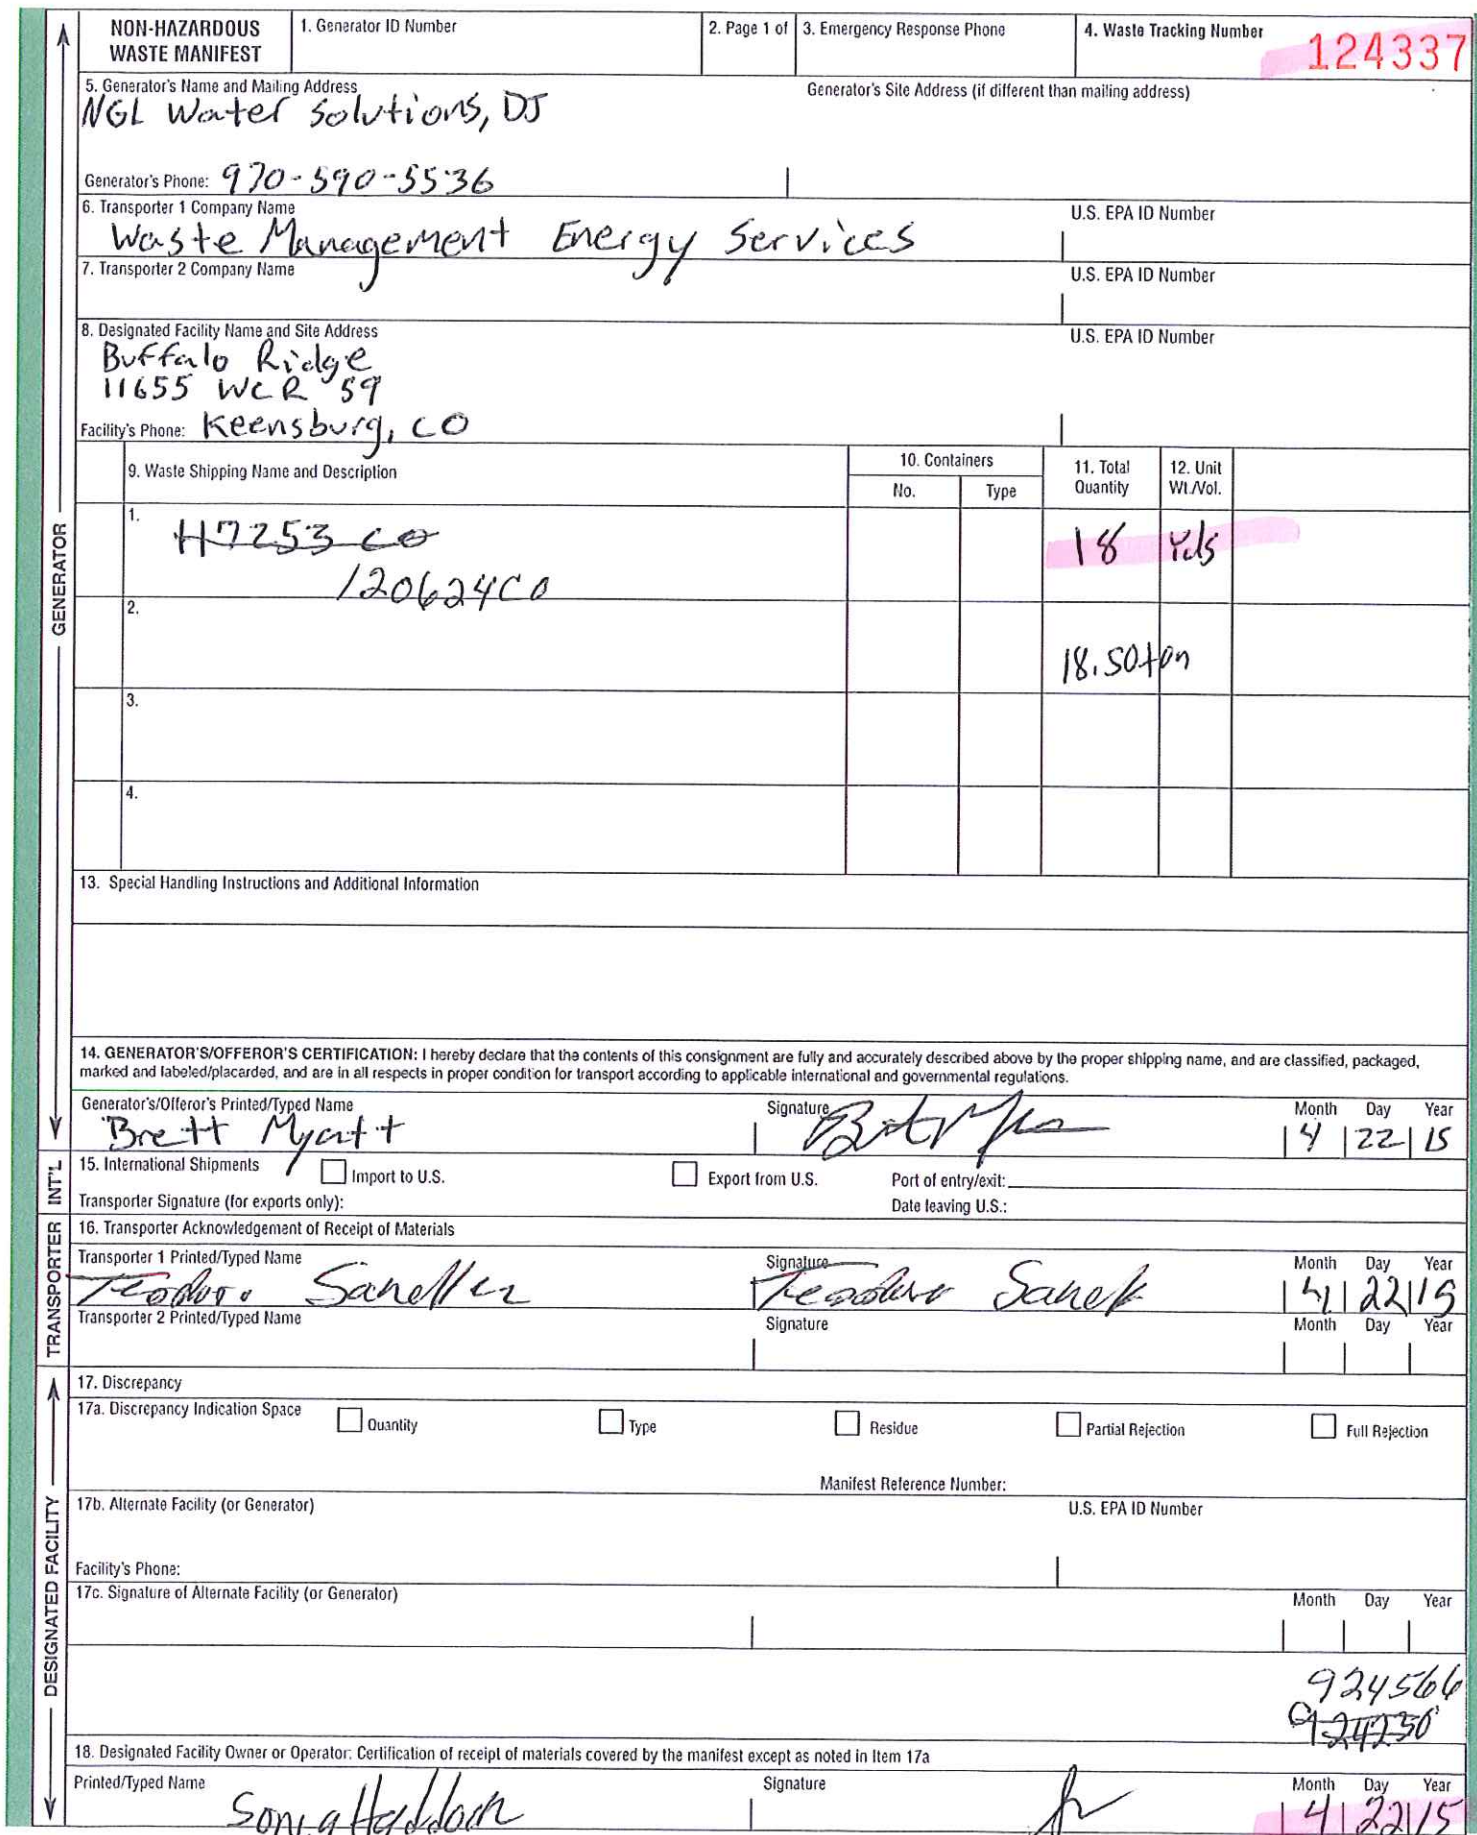 NON-HAZARDOUS WASTE MANIFEST
1. Generator ID Number
2. Page 1 of
3. Emergency Response Phone
4. Waste Tracking Number
124337
5. Generator's Name and Mailing Address
Generator's Site Address (if different than mailing address)
NGL Water Solutions, DJ
Generator's Phone: 970-590-5536
6. Transporter 1 Company Name
U.S. EPA ID Number
Waste Management Energy Services
7. Transporter 2 Company Name
U.S. EPA ID Number
8. Designated Facility Name and Site Address
U.S. EPA ID Number
Buffalo Ridge
11655 WCR 59
Facility's Phone: Keensburg, CO
9. Waste Shipping Name and Description
10. Containers
No.
Type
11. Total Quantity
12. Unit Wt./Vol.
1.
H7253 CO
18 Yds
120624CO
2.
18.50 ton
3.
4.
13. Special Handling Instructions and Additional Information
14. GENERATOR'S/OFFEROR'S CERTIFICATION: I hereby declare that the contents of this consignment are fully and accurately described above by the proper shipping name, and are classified, packaged,
marked and labeled/placarded, and are in all respects in proper condition for transport according to applicable international and governmental regulations.
Generator's/Offeror's Printed/Typed Name
Signature
Month Day Year
Brett Myatt
4 22 15
15. International Shipments
Import to U.S.
Export from U.S.
Port of entry/exit:
Transporter Signature (for exports only):
Date leaving U.S.:
16. Transporter Acknowledgement of Receipt of Materials
Transporter 1 Printed/Typed Name
Signature
Month Day Year
Teodoro
Teodoro
4 22 15
Transporter 2 Printed/Typed Name
Signature
Month Day Year
17. Discrepancy
17a. Discrepancy Indication Space
Quantity
Type
Residue
Partial Rejection
Full Rejection
Manifest Reference Number:
17b. Alternate Facility (or Generator)
U.S. EPA ID Number
Facility's Phone:
17c. Signature of Alternate Facility (or Generator)
Month Day Year
924566
924230
18. Designated Facility Owner or Operator: Certification of receipt of materials covered by the manifest except as noted in Item 17a
Printed/Typed Name
Signature
Month Day Year
Sonia Haddock
4 22 15
GENERATOR
INT'L
TRANSPORTER
DESIGNATED FACILITY